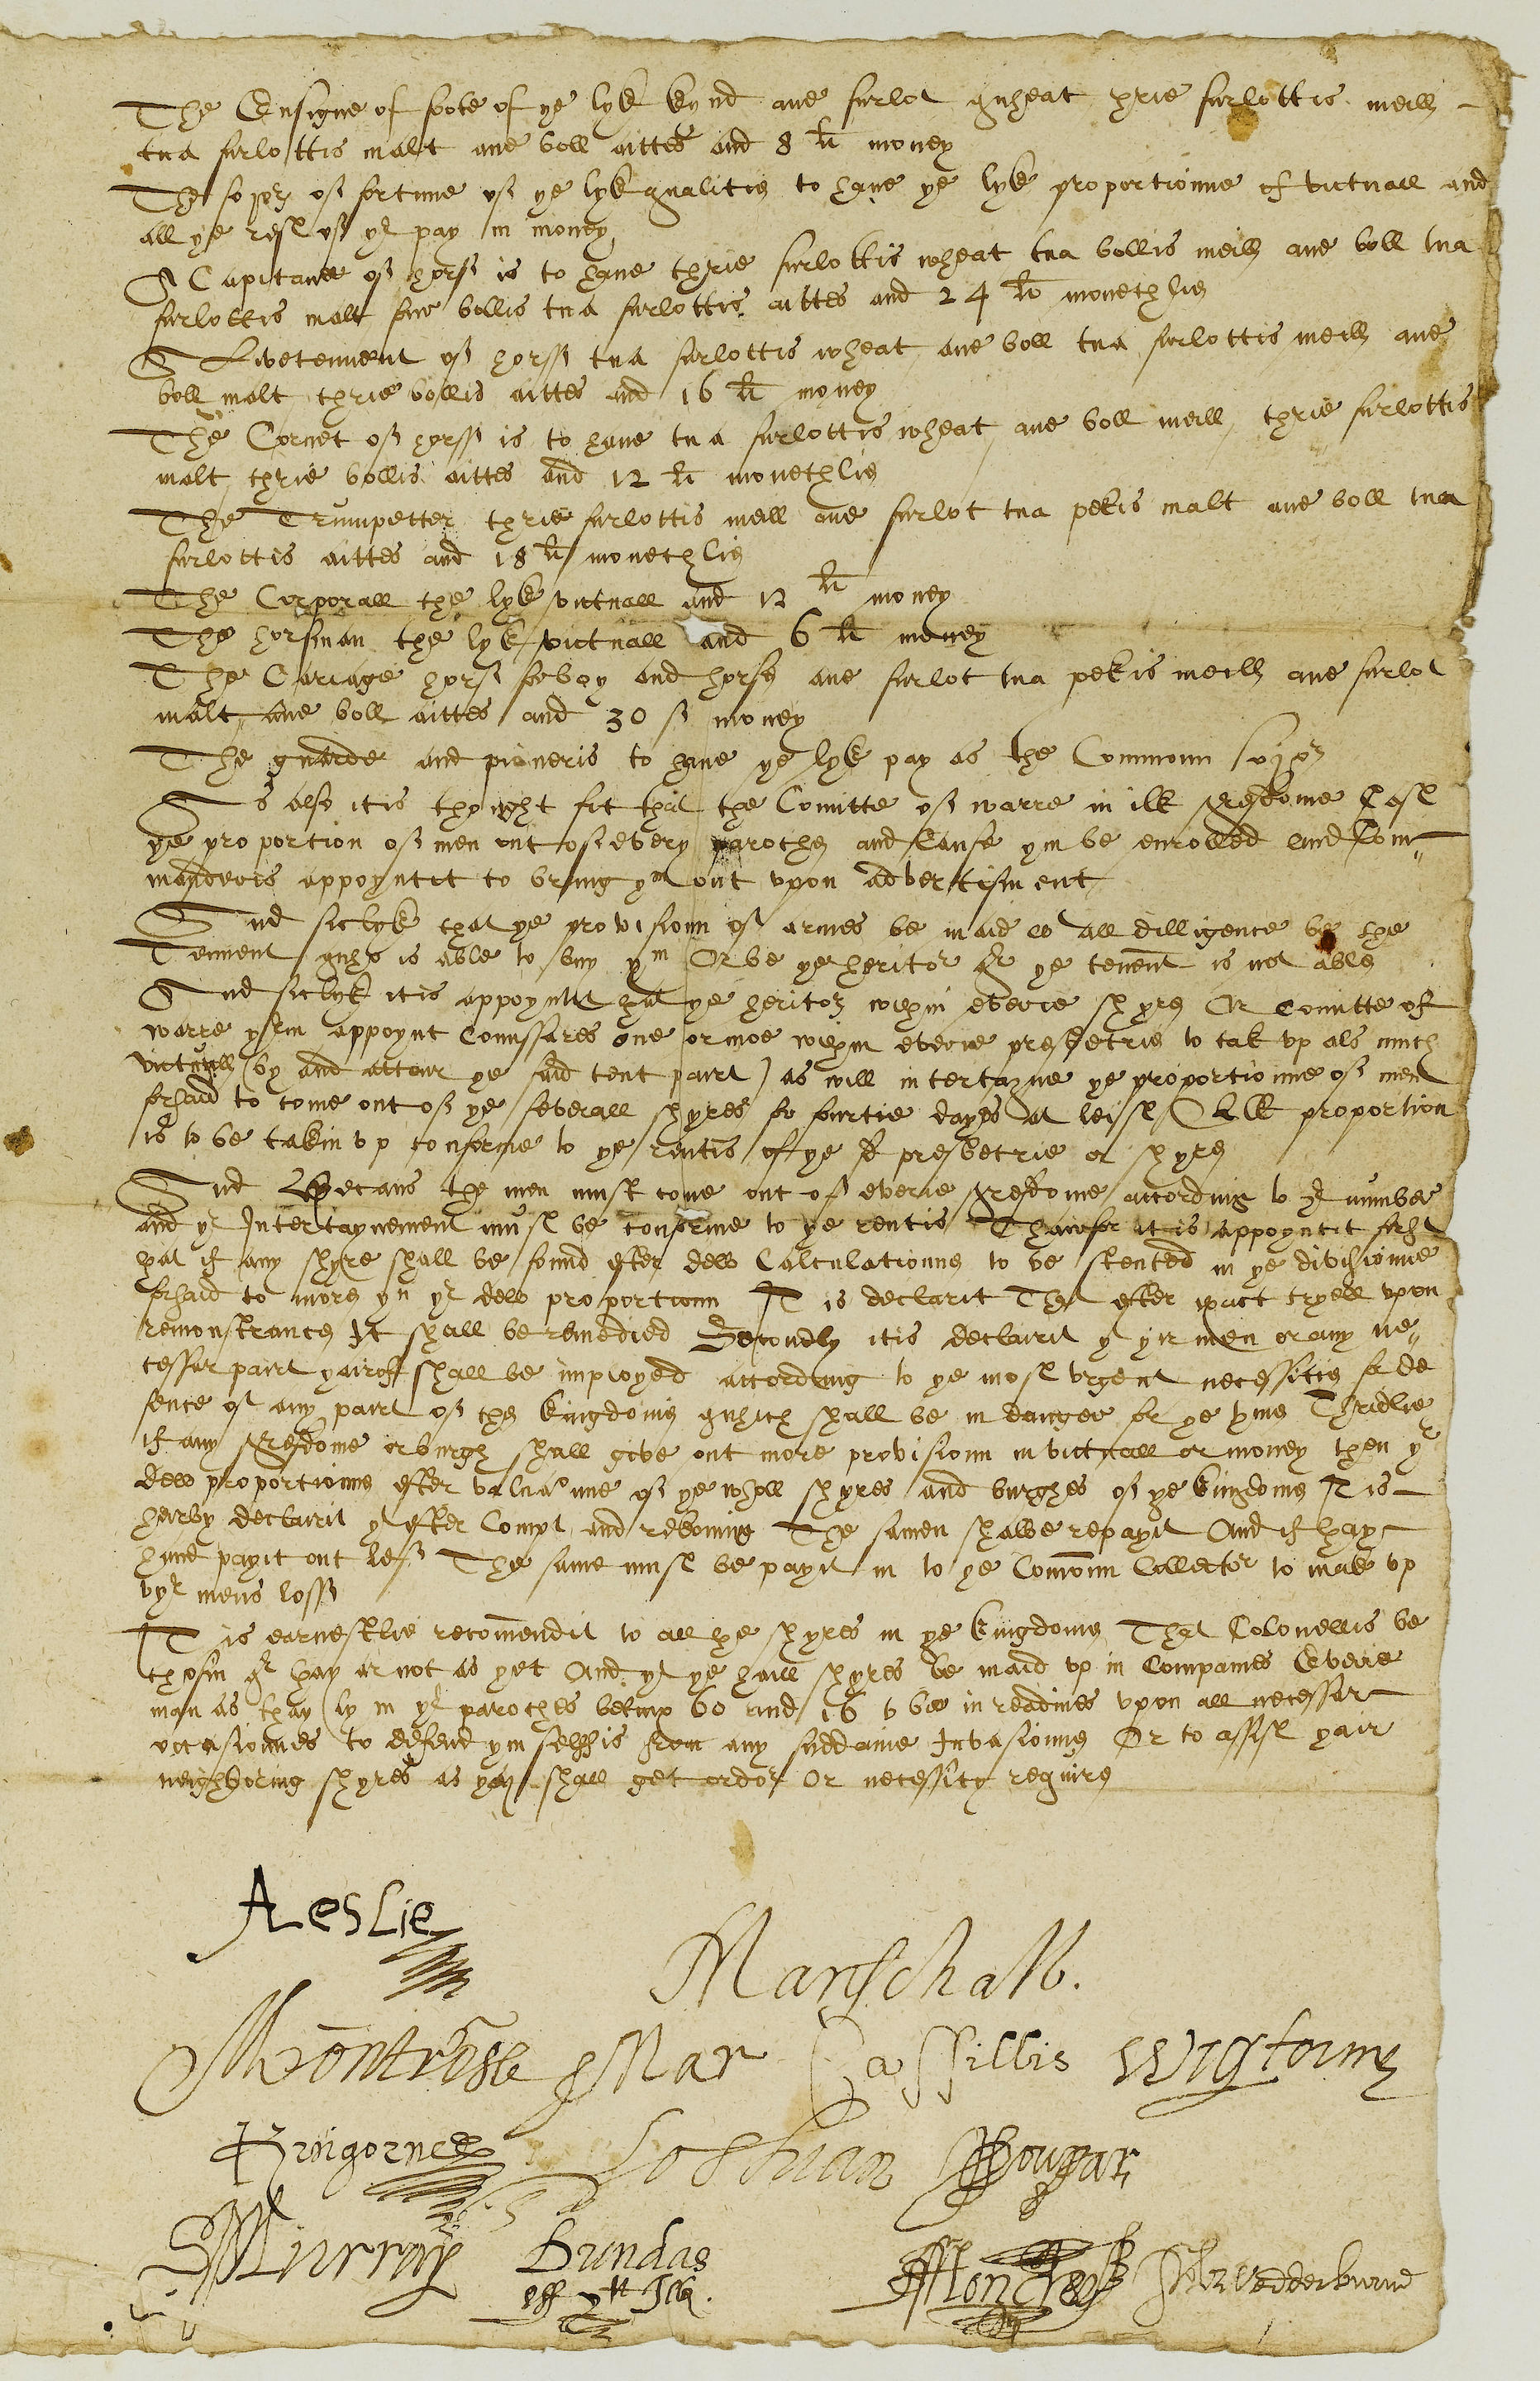 The Ensigne of foote of ye lyk kynd ane furlot quheat thrie furlottis meill
tua furlottis malt ane boll aittes and 8 lib money
The sojors of fortune of ye lyk qualitie to have ye lyk proportionne of victuall and
all ye rest of yr pay in money
A Capitane of horse is to have thrie furlottis wheat tua bollis meill ane boll tua
furlottis malt four bollis tua furlottis aittes and 24 lib monethlie
A Livetennent of horss tua furlottis wheat ane boll tua furlottis meill ane
boll malt thrie bollis aittes and 16 lib money
The Cornet of horss is to have tua furlottis wheat, ane boll meill, thrie furlottis
malt, thrie bollis aittes and 12 lib monethlie
The Trumpetter thrie furlottis meill ane furlot tua pekis malt ane boll tua
furlottis aittes and 18 lib monethlie
The Corporall the lyk victuall and 12 lib money
The horsman the lyk victuall and 6 lib money
The Cariage horse boy and horse ane furlot tua pekis meill ane furlot
malt, ane boll aittes and 30 s money
The guarde and pioneris to have ye lyk pay as the Commoun sojors
As also it is thought fit that the Comitte of warre in ilk Srefdome Cast
ye proportion of men out of every paroche and Cause ym be enrolled and Com-
manderis appoyntit to bring ym out upon advertisment
And siclyk that ye provisioun of armes be maid wt all dilligence be the
Tennent quho is able to buy ym Or be ye heritor qr ye tenent is not able
And siclyk it is appoyntit that ye heritors within everie shyre Or Comitte of
warre yrin appoynt Comissares one or moe within everie presbetrie to tak up als much
victuall (by and attour ye said tent pairt) as will intertayne ye proportionne of men
forsaid to come out of ye severall shyres for fourtie dayes at leist Ilk proportion
is to be takin up conforme to ye rentis of ye sd presbetrie or shyre
And Becaus the men must come out of everie Srefdome according to yr number
and yr Intertaynement must be conforme to ye rentis Thairfor it is appoyntit first
that if any shyre shall be found efter dew Calculationne to be stented in ye divisionne
forsaid to more yn yr dew proportioun It is declarit That efter exact tryell upon
remonstrance It shall be remedied Secondly it is declairit yt yir men or any ne-
cessar pairt yairoff shall be imployed according to ye most urgent necessitie for de
fence of any pairt of the kingdome quhich shall be in danger for ye tyme Thridlie
if any Srefdome or burgh shall give out more provisioun in victuall or money then yr
dew proportionne efter valuatnne of ye wholl shyres and burghes of ye kingdome It is
herby declairit yt efter Compt and rekoning The samen shalbe repayit And if thay
have payit out less The same must be payit in to ye Comoun Collector to mak up
uyr mens loss
It is earnestlie recomendit to all the shyres in ye kingdome That Colonellis be
chosin qr thay ar not as yet And yt ye haill shyres be maid up in Companies Everie
man as thay ly in yr paroches betuix 60 and 16 to be in readines upon all necessar
occasionnes to defend ym selffis from any suddaine Invasionne Or to assist yair
neighboring shyres as yay shall get ordor Or necessity require
ALeslie
Marschall.
Montrose Mar Cassillis Wigtoune
Kingorne Lothian
Murray Dundas
off yt Ilk.
Wedderburne